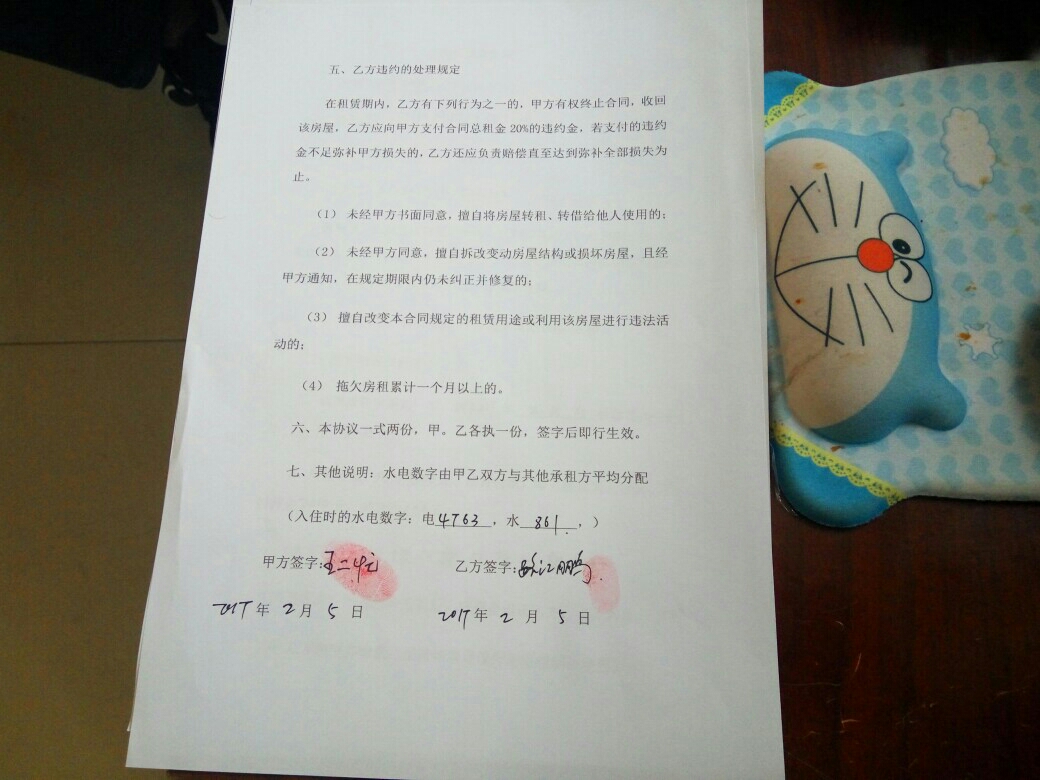 五、乙方违约的处理规定
在租赁期内，乙方有下列行为之一的，甲方有权终止合同，收回
该房屋，乙方应向甲方支付合同总租金 20%的违约金，若支付的违约
金不足弥补甲方损失的，乙方还应负责赔偿直至达到弥补全部损失为
止。
（1） 未经甲方书面同意，擅自将房屋转租、转借给他人使用的；
（2） 未经甲方同意，擅自拆改变动房屋结构或损坏房屋，且经
甲方通知，在规定期限内仍未纠正并修复的；
（3） 擅自改变本合同规定的租赁用途或利用该房屋进行违法活
动的；
（4） 拖欠房租累计一个月以上的。
六、本协议一式两份，甲。乙各执一份，签字后即行生效。
七、其他说明：水电数字由甲乙双方与其他承租方平均分配
（入住时的水电数字：电4763，水861.，）
甲方签字： 乙方签字：
2017年 2月 5日 2017年 2月 5日